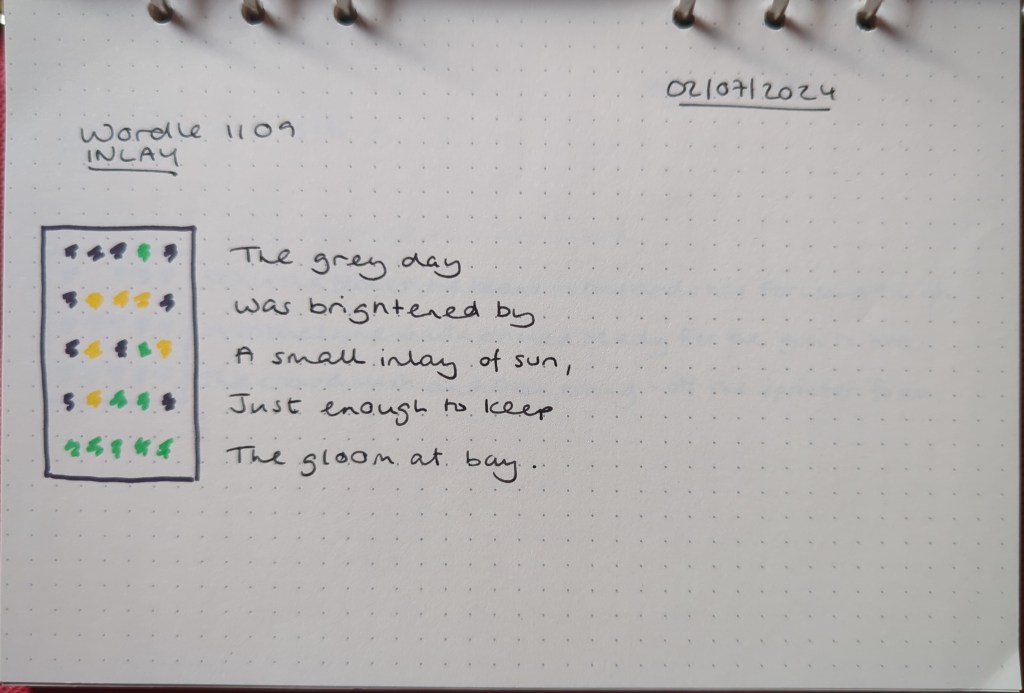 02/07/2024
Wordle 1109
INLAY
The grey day
was brightened by
A small inlay of sun,
Just enough to keep
The gloom at bay.